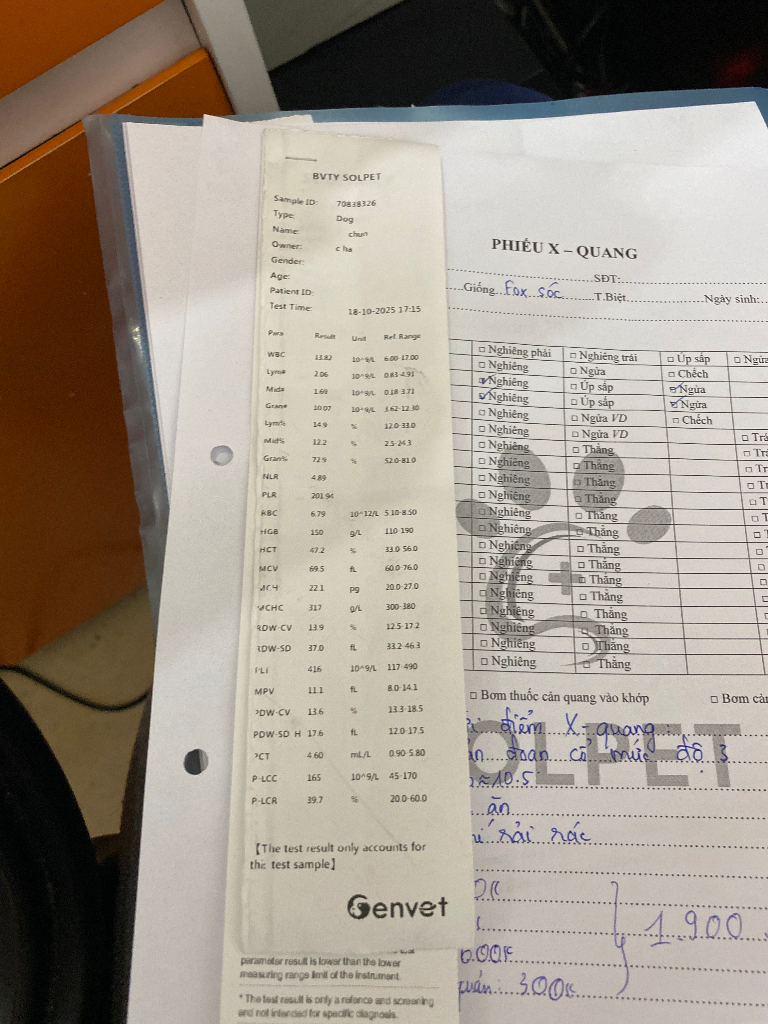 BVTY SOLPET
Sample ID: 70838326
Type: Dog
Name: chun
Owner: c ha
Gender:
Age:
Patient ID:
Test Time: 18-10-2025 17:15
Para Result Unit Ref. Range
WBC 13.82 10^9/L 6.00-17.00
Lym# 2.06 10^9/L 0.83-4.91
Mid# 1.69 10^9/L 0.18-3.71
Gran# 10.07 10^9/L 3.62-12.30
Lym% 14.9 % 12.0-33.0
Mid% 12.2 % 2.5-24.3
Gran% 72.9 % 52.0-81.0
NLR 4.89
PLR 201.94
RBC 6.79 10^12/L 5.10-8.50
HGB 150 g/L 110-190
HCT 47.2 % 33.0-56.0
MCV 69.5 fL 60.0-76.0
MCH 22.1 pg 20.0-27.0
MCHC 317 g/L 300-380
RDW-CV 13.9 % 12.5-17.2
RDW-SD 37.0 fL 33.2-46.3
PLT 416 10^9/L 117-490
MPV 11.1 fL 8.0-14.1
PDW-CV 13.6 % 13.3-18.5
PDW-SD H 17.6 fL 12.0-17.5
PCT 4.60 mL/L 0.90-5.80
P-LCC 165 10^9/L 45-170
P-LCR 39.7 % 20.0-60.0
【The test result only accounts for
the test sample】
Genvet
parameter result is lower than the lower
measuring range limit of the instrument.
* The test result is only a refence and screening
and not intended for specific diagnosis.
PHIẾU X – QUANG
SĐT:
Giống Fox sóc T.Biệt Ngày sinh:
□ Nghiêng phải □ Nghiêng trái □ Úp sấp □ Ngửa
□ Nghiêng □ Ngửa □ Chếch
☑ Nghiêng □ Úp sấp ☑ Ngửa
☑ Nghiêng □ Úp sấp ☑ Ngửa
□ Nghiêng □ Ngửa VD □ Chếch
□ Nghiêng □ Ngửa VD
□ Nghiêng □ Thẳng
□ Nghiêng □ Thẳng
□ Nghiêng □ Thẳng
□ Nghiêng □ Thẳng
□ Nghiêng □ Thẳng
□ Nghiêng □ Thẳng
□ Nghiêng □ Thẳng
□ Nghiêng □ Thẳng
□ Nghiêng □ Thẳng
□ Nghiêng □ Thẳng
□ Nghiêng □ Thẳng
□ Nghiêng □ Thẳng
□ Nghiêng □ Thẳng
□ Bơm thuốc cản quang vào khớp □ Bơm
OLPET
điểm X-quang:
đoạn cổ mức độ 3
10.5
ăn
rải rác
1.900
300k